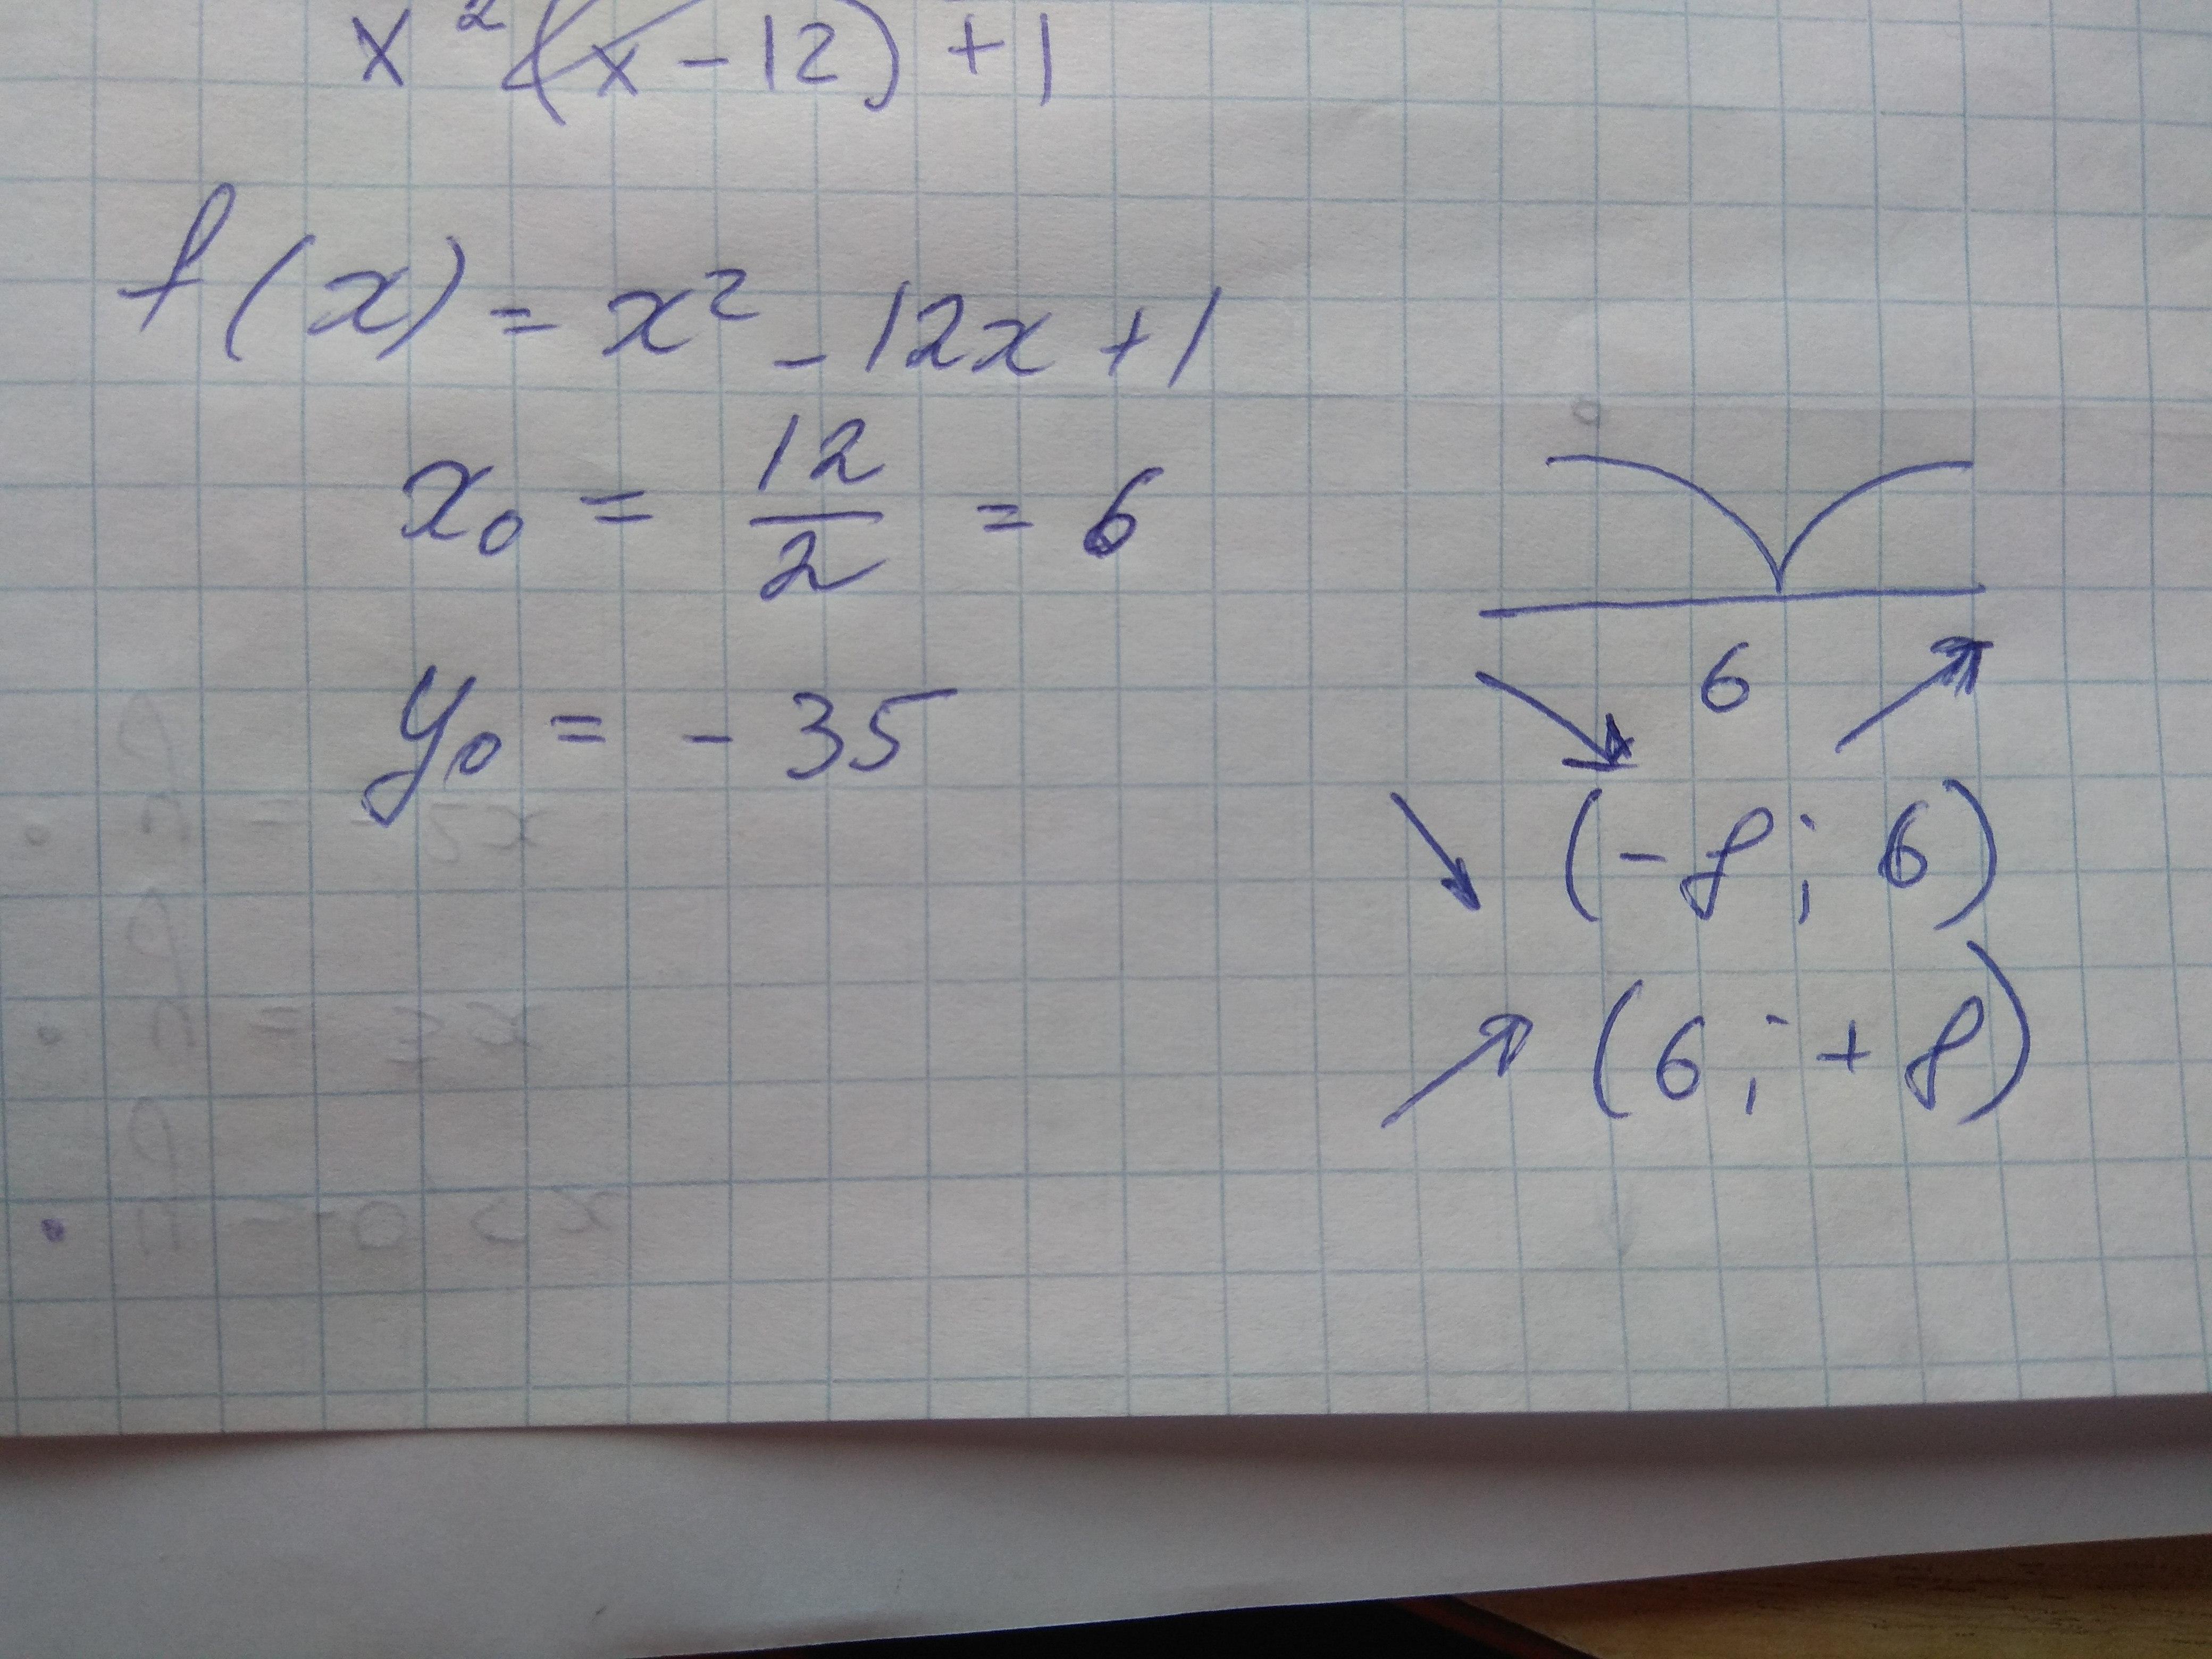 x²(x-12)+1
f(x) = x² - 12x + 1
x₀ = 12/2 = 6
y₀ = - 35
6
(- 8; 6)
(6; + 8)